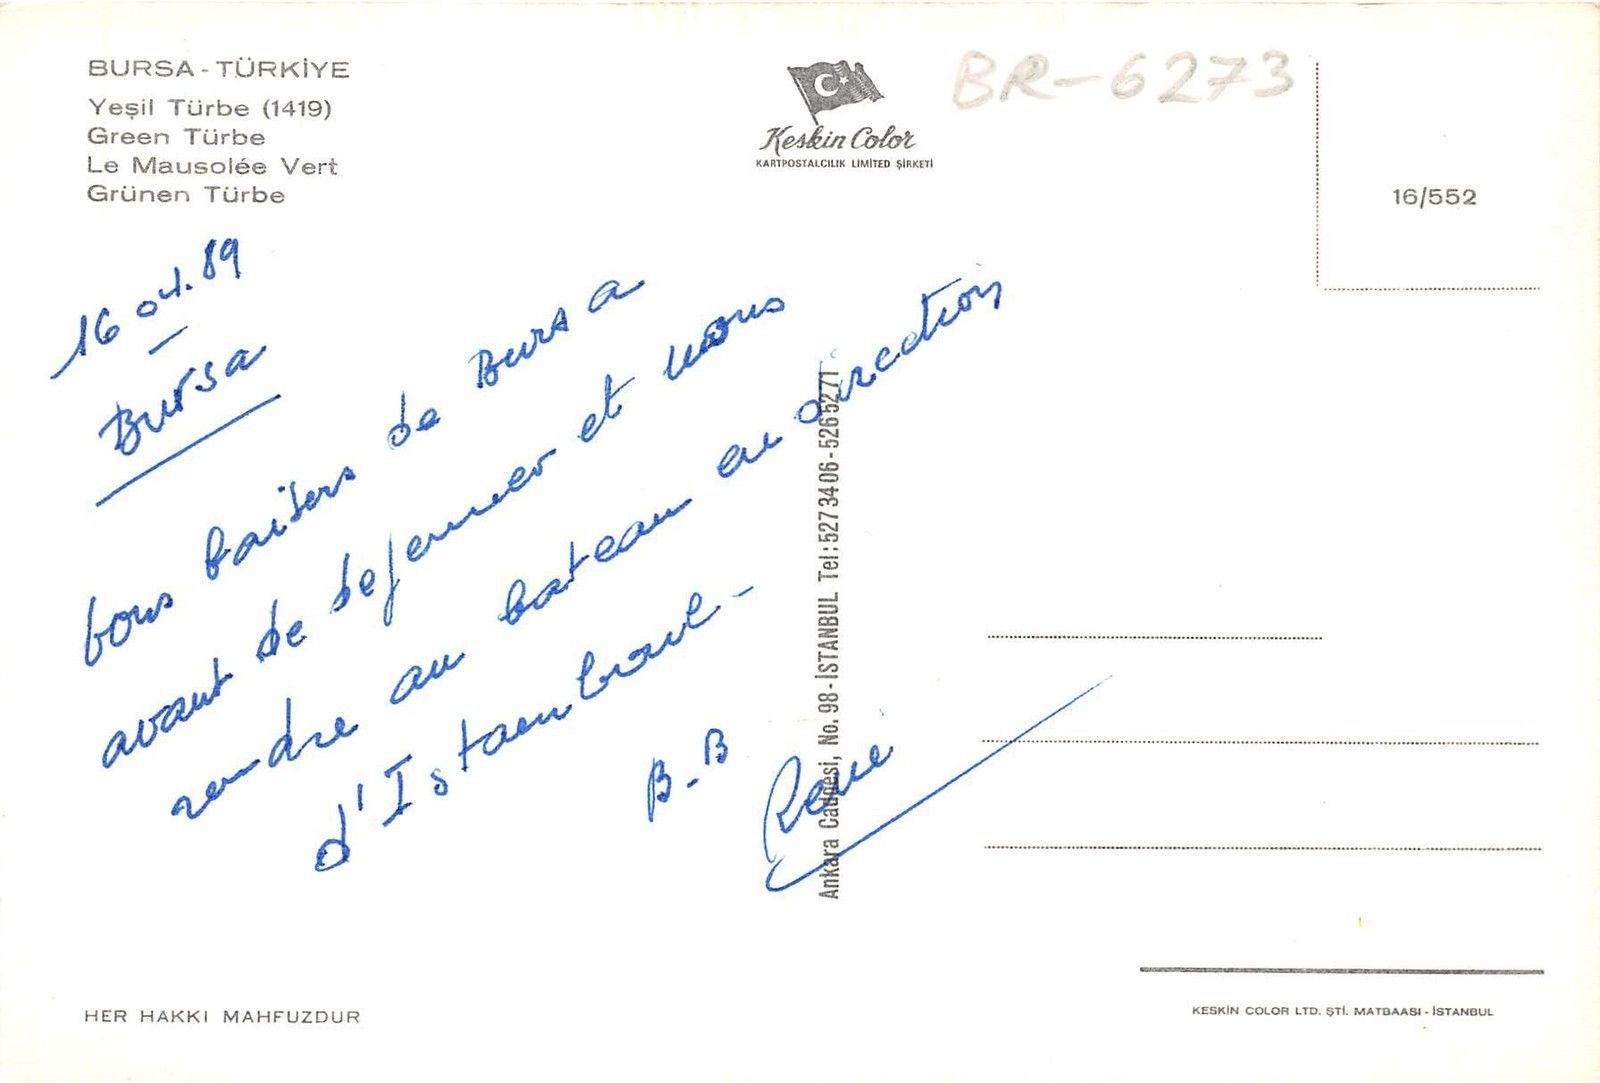 BURSA - TÜRKİYE
Yeşil Türbe (1419)
Green Türbe
Le Mausolée Vert
Grünen Türbe
Keskin Color
KARTPOSTALCILIK LIMITED ŞİRKETİ
BR-6273
16/552
16 04.89
Bursa
bons baisers de Bursa
avant de dejeuner et nous
rendre au bateau en direction
d'Istamboul-
B.B
René
Ankara Caddesi, No. 98 - İSTANBUL Tel: 5273406 - 5265271
HER HAKKI MAHFUZDUR
KESKİN COLOR LTD. ŞTİ. MATBAASI - İSTANBUL